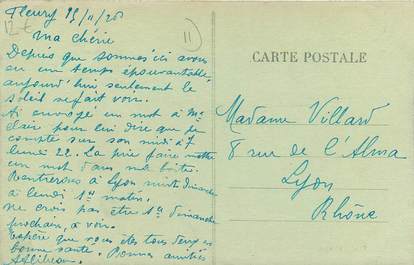 Fleury 15/11/26
12€
11
Ma chérie
Depuis que sommes ici avons
eu un temps épouvantable
aujourd'hui seulement le
soleil se fait voir.
Ai envoyé un mot à Mr
Clair pour lui dire que je
compte sur son midi à 7
lundi 22. La prie faire mettre
un mot dans ma boîte.
Rentrerons à Lyon nuit dimanche
à lundi 1er matin.
ne crois pas être 1er dimanche
prochain, à voir.
Espère que vous êtes tous deux en
bonne santé. Bonnes amitiés
CARTE POSTALE
Madame Villard
8 rue de l'Alma
Lyon
Rhône